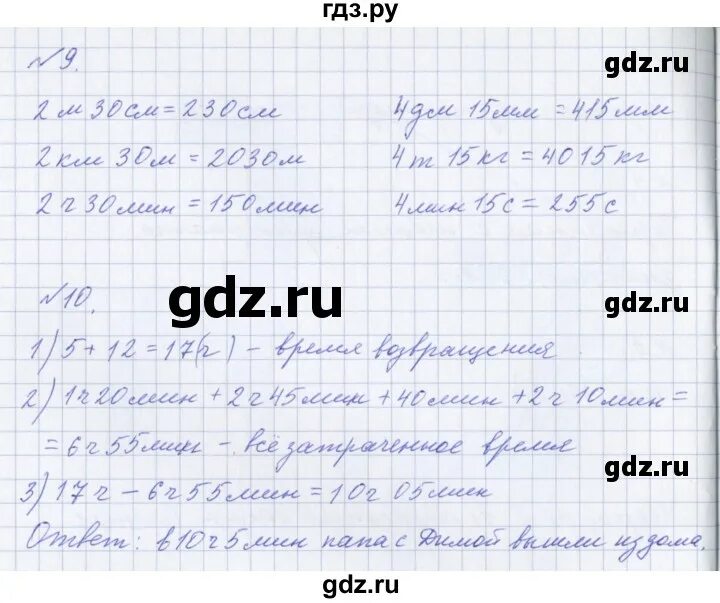 гдз.ру
№9.
gdz.ru
2 м 30 см = 230 см
4 дм 15 мм = 415 мм
2 км 30 м = 2030 м
4 т 15 кг = 4015 кг
2 ч 30 мин = 150 мин
4 мин 15 с = 255 с
№10.
gdz.ru
gdz.ru
1) 5 + 12 = 17(ч) – время возвращения
2) 1ч 20 мин + 2ч 45 мин + 40 мин + 2ч 10 мин =
= 6ч 55 мин – всё затраченное время
gdz.ru
3) 17 ч – 6ч 55 мин = 10ч 05 мин
Ответ: в 10ч 5 мин папа с Димой вышли из дома.
gdz.ru